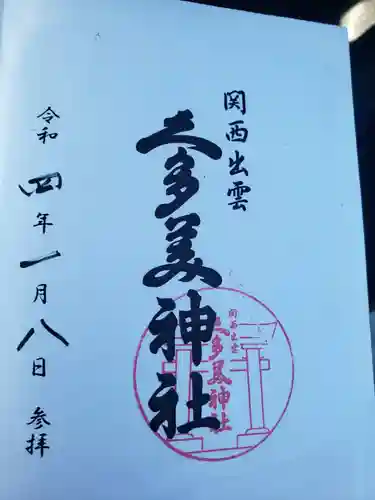 関西出雲
久多美神社
関西出雲
久多美神社
令和四年一月八日 参拝